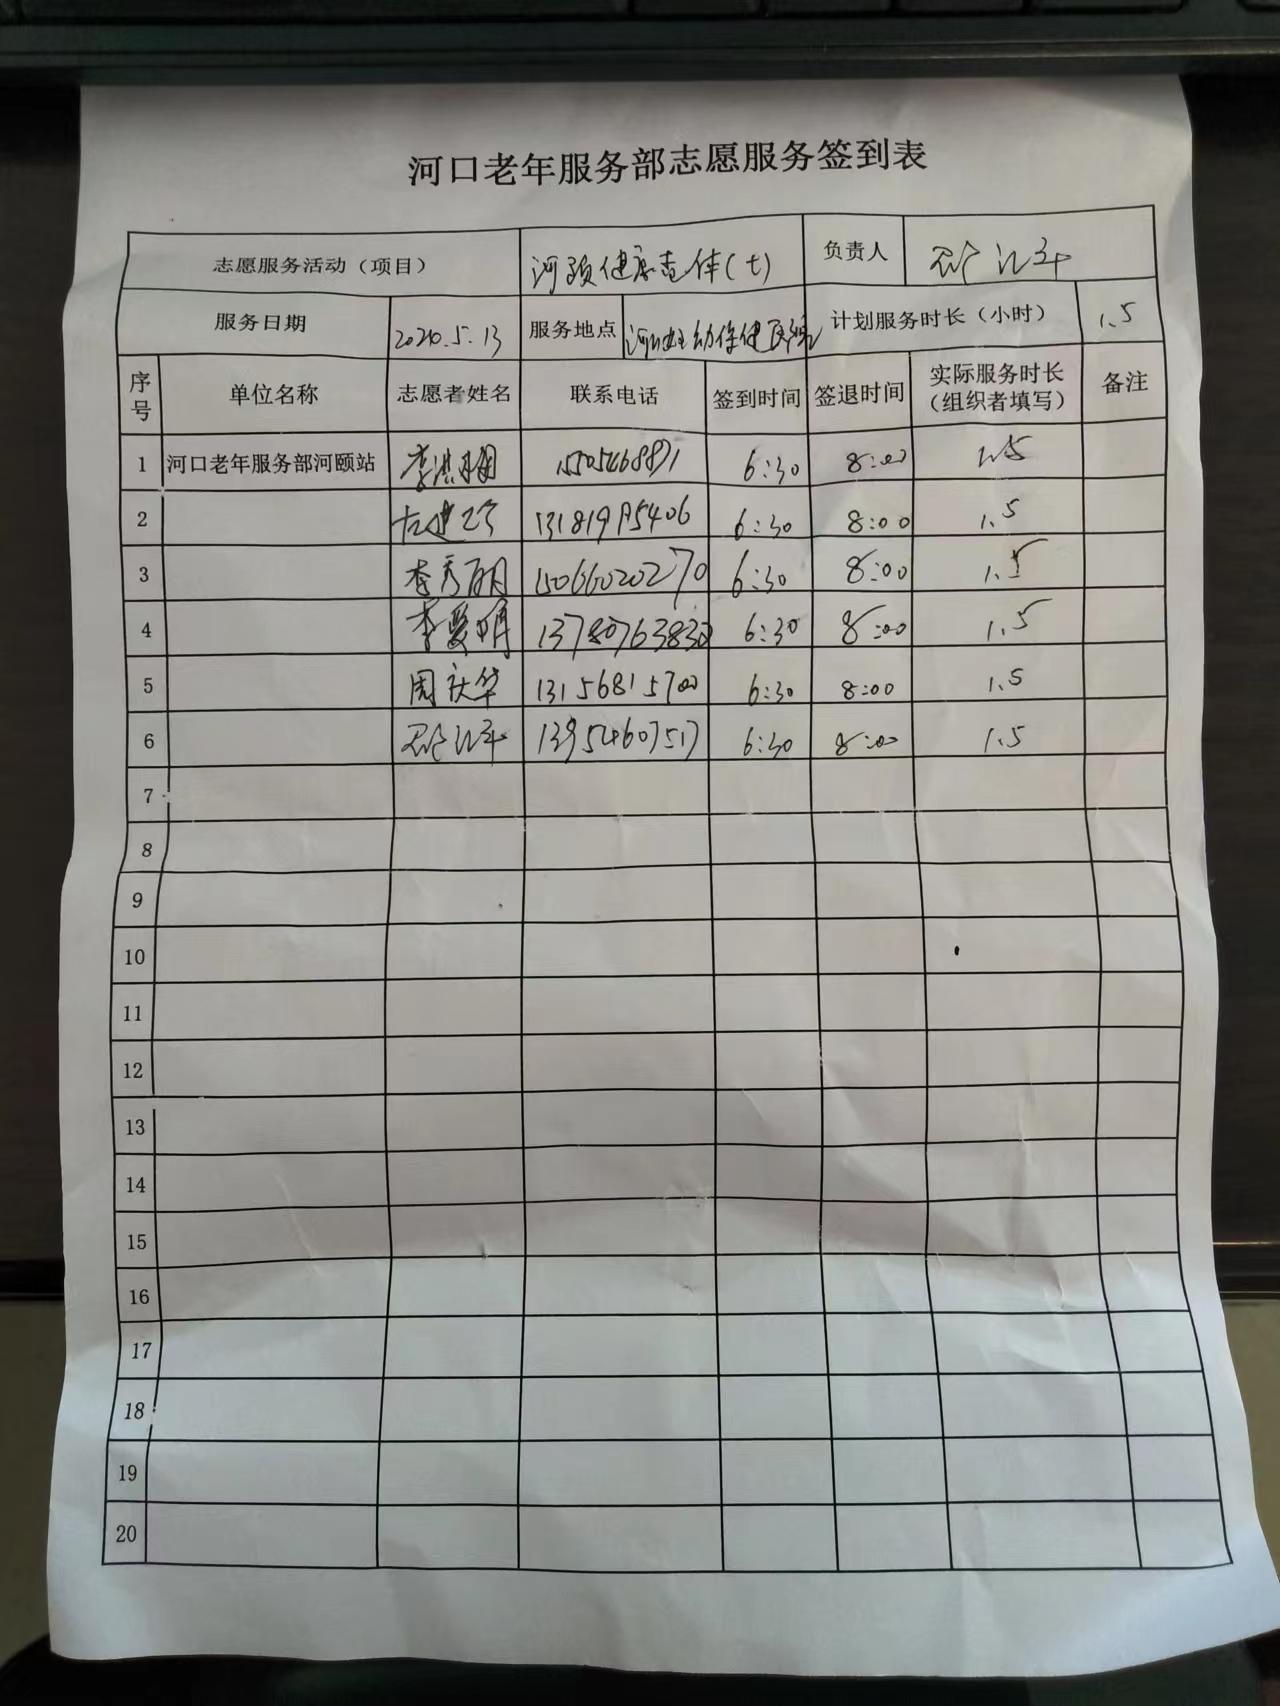 河口老年服务部志愿服务签到表
志愿服务活动（项目） 河颐健康查体(七) 负责人
服务日期 2020.5.13 服务地点 计划服务时长（小时） 1.5
序号 单位名称 志愿者姓名 联系电话 签到时间 签退时间 实际服务时长（组织者填写） 备注
1 河口老年服务部河颐站 6:30 8:00 1.5
2 6:30 8:00 1.5
3 李秀丽 15066020270 6:30 8:00 1.5
4 李爱明 13780763832 6:30 8:00 1.5
5 周庆华 13156815700 6:30 8:00 1.5
6 13954607517 6:30 8:00 1.5
7
8
9
10
11
12
13
14
15
16
17
18
19
20